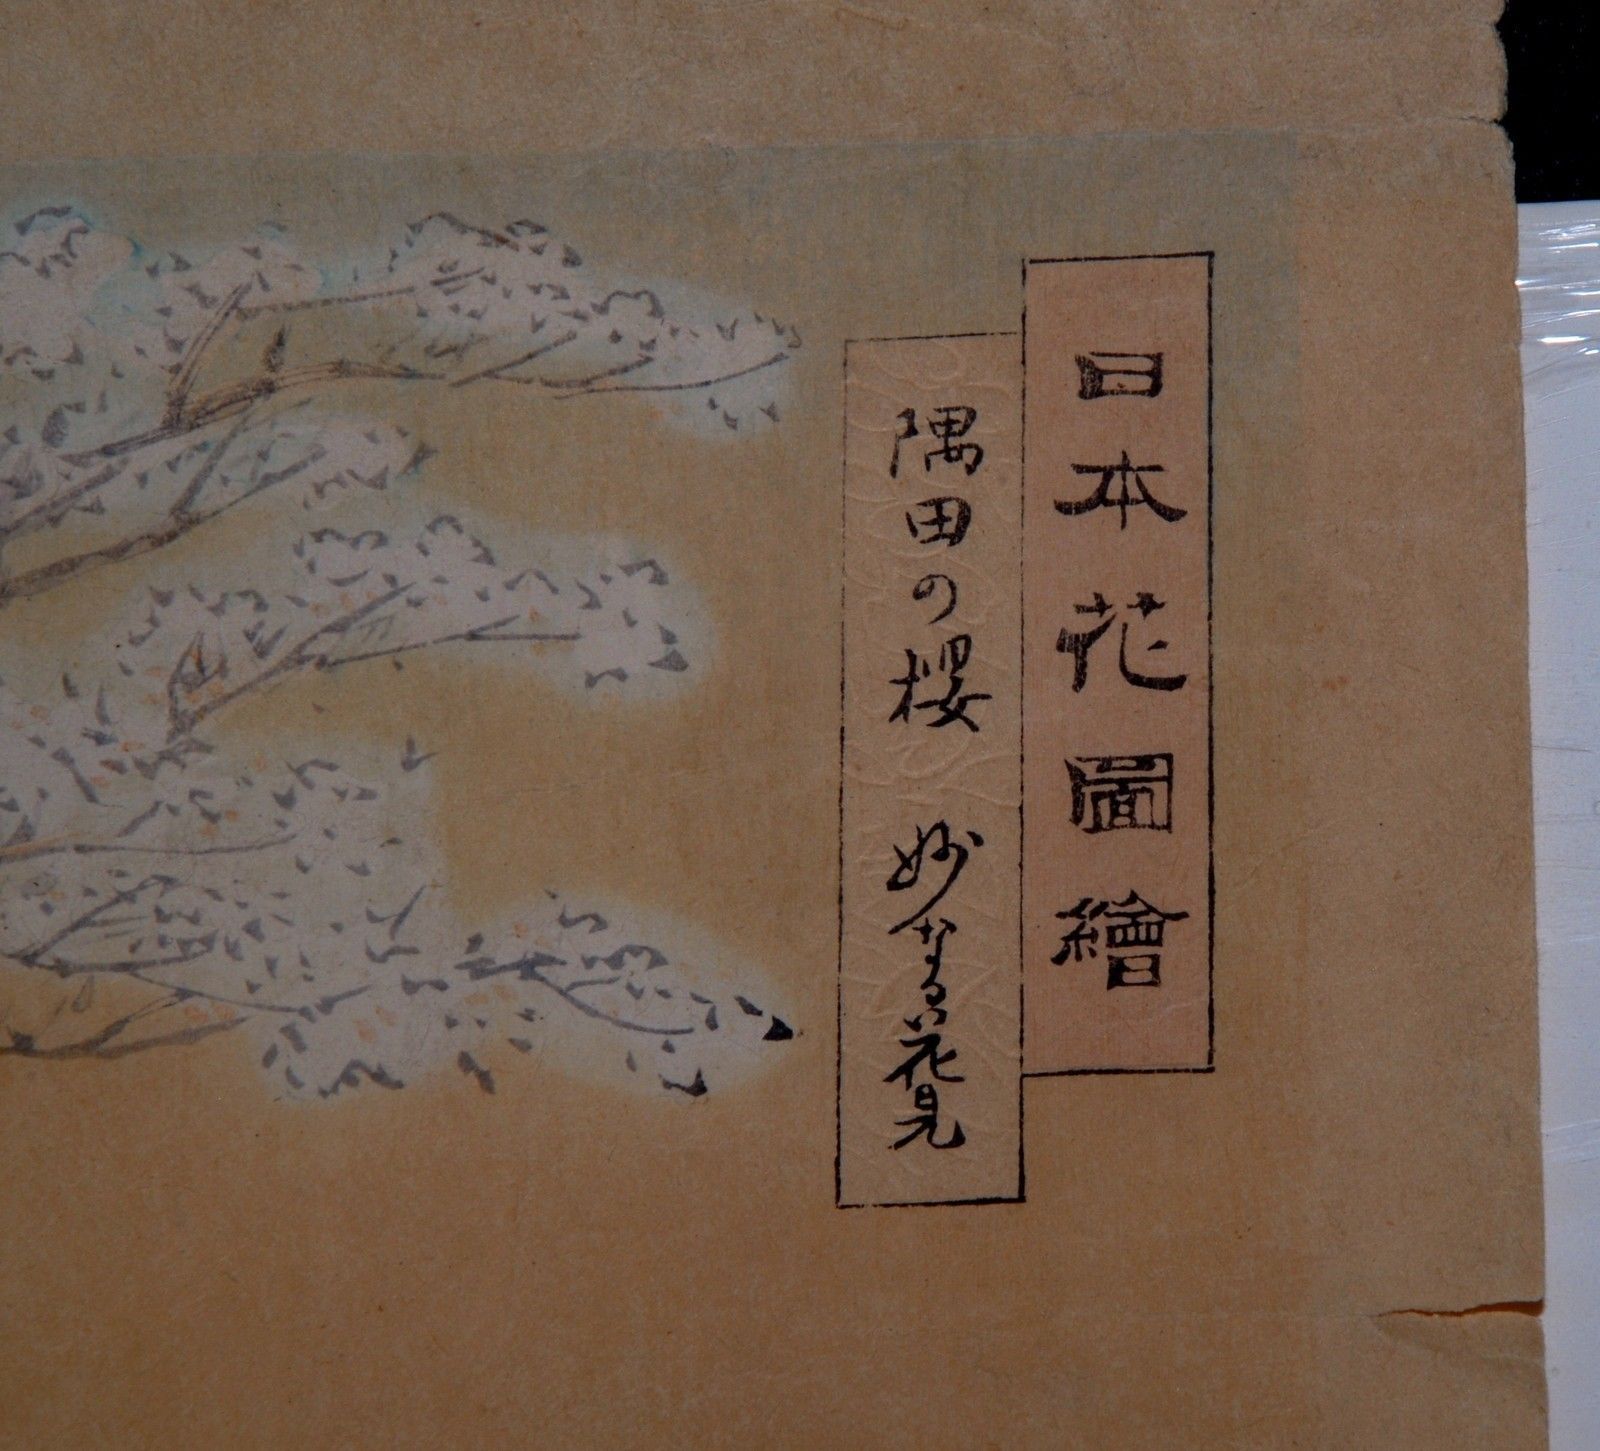 日本花圖繪
隅田の櫻 妙なる花見